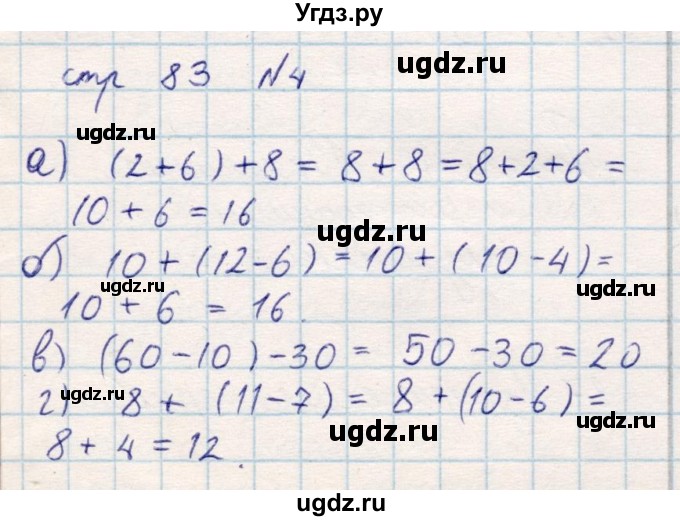 Угдз.ру
ugdz.ru
стр 83 №4
ugdz.ru
а) (2+6)+8 = 8+8 = 8+2+6 =
10 + 6 = 16
ugdz.ru
б) 10 + (12-6) = 10 + (10-4) =
ugdz.ru
ugdz.ru
10 + 6 = 16.
в) (60-10)-30 = 50-30 = 20
ugdz.ru
г) 8 + (11-7) = 8 + (10-6) =
ugdz.ru
ugdz.ru
8 + 4 = 12.
ugdz.ru